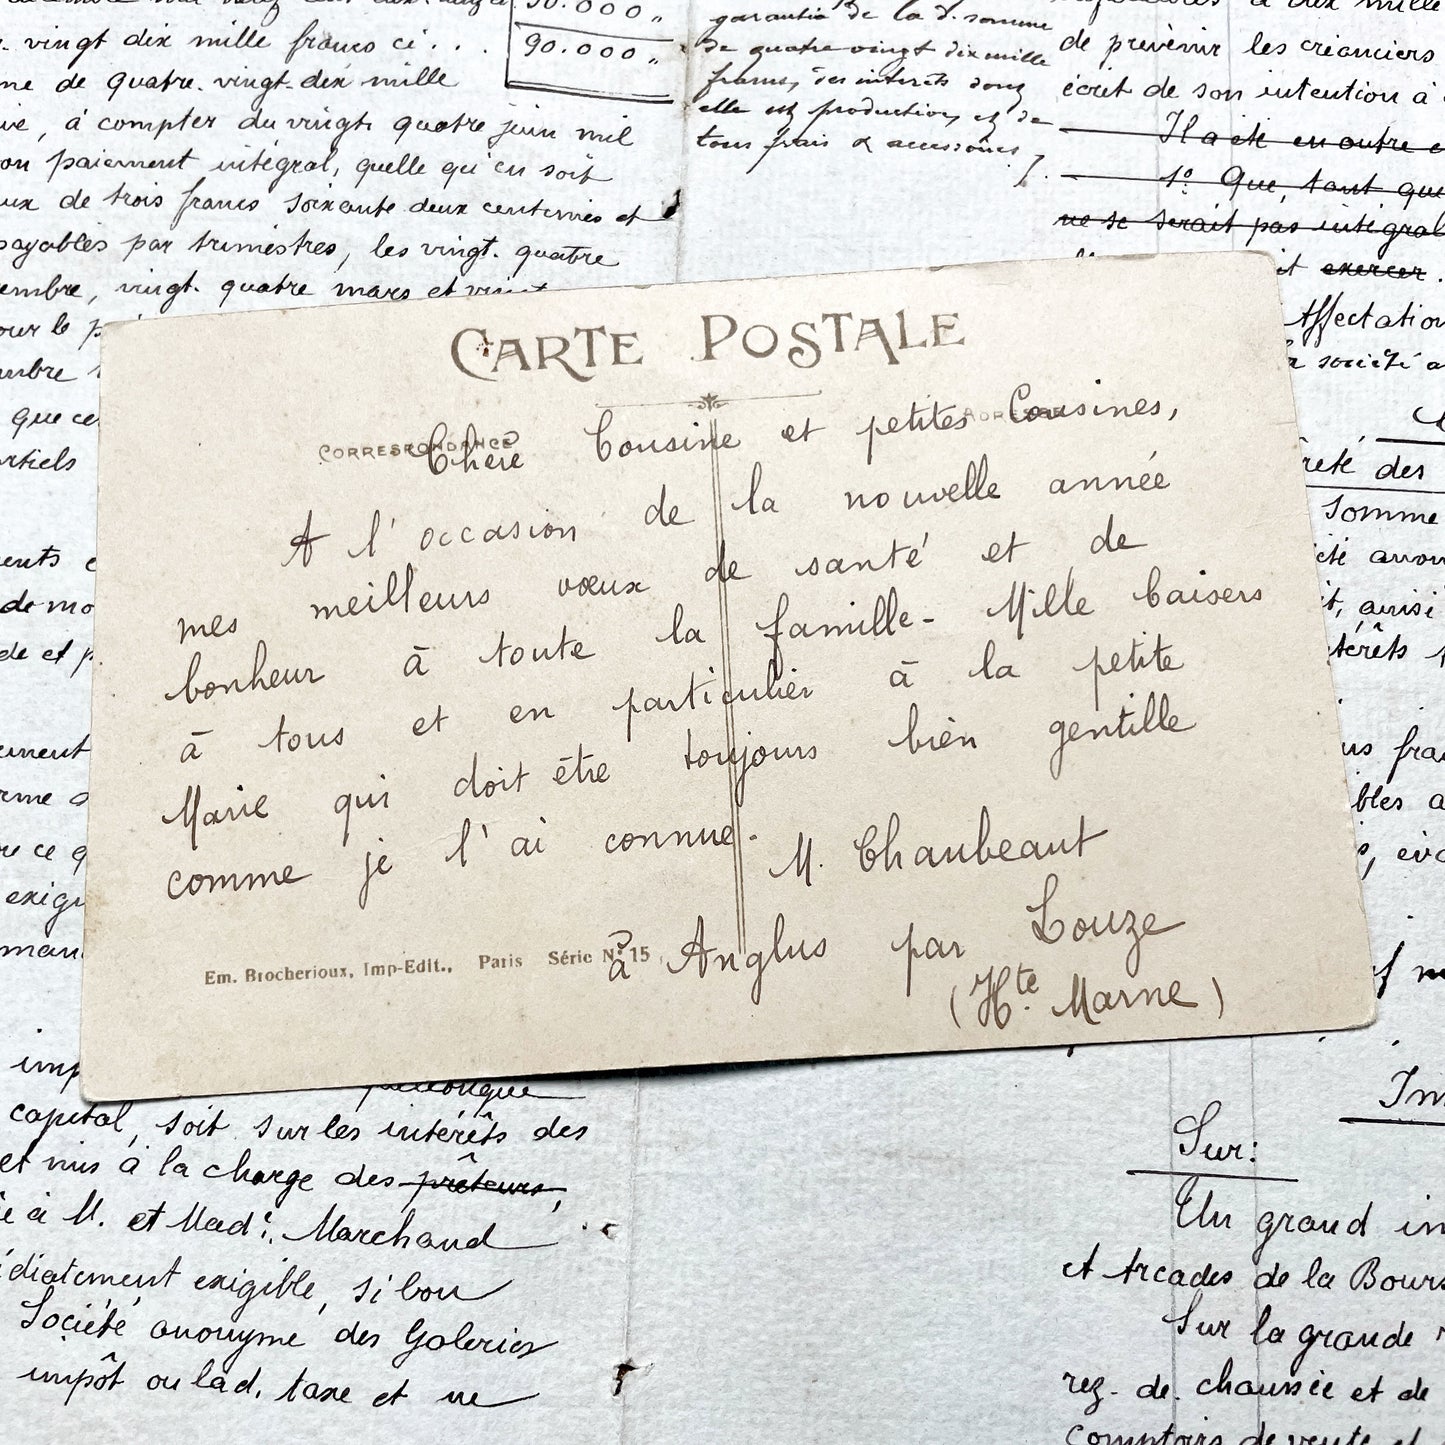 90.000 "
vingt dix mille francs ci . . .
90.000 "
de quatre. vingt. dix mille
à compter du vingt quatre juin mil
paiement intégral, quelle qu'en soit
de trois francs soixante deux centimes et
payables par trimestres, les vingt. quatre
vingt. quatre mars et vingt
our le
que ce
garantie de la d. somme
de quatre vingt dix mille
francs, des intérêts dont
elle est productive, et de
tous frais & accessoires
de prévenir les créanciers
écrit de son intention à
Il a été en outre
1º Que, tant que
ne se serait pas intégral
it exercer.
Affectation
la société a
reté des
Somme
été anon
it, ainsi
térêts
us fran
bles a
CARTE POSTALE
CORRESPONDANCE
ADRESSE
Chère Cousine et petites Cousines,
A l'occasion de la nouvelle année
mes meilleurs vœux de santé et de
bonheur à toute la famille - Mille baisers
à tous et en particulier à la petite
Marie qui doit être toujours bien gentille
comme je l'ai connue.
M. Chaubeaut
à Anglus par Louze
(Hte. Marne)
Em. Brocherioux, Imp-Edit., Paris Série Nº 15
ents
de mo
de et p
ement
rme
ce q
exigi
man
imp
capital, soit sur les intérêts des
et mis à la charge des prêteurs,
à M. et Made. Marchand
édiatement exigible, si bon
Société anonyme des Galeries
impôt ou lad. taxe et ne
Im
Sur:
Un grand im
et Arcades de la Bours
Sur la grande
rez. de. chaussée et de
comptoirs de vente et